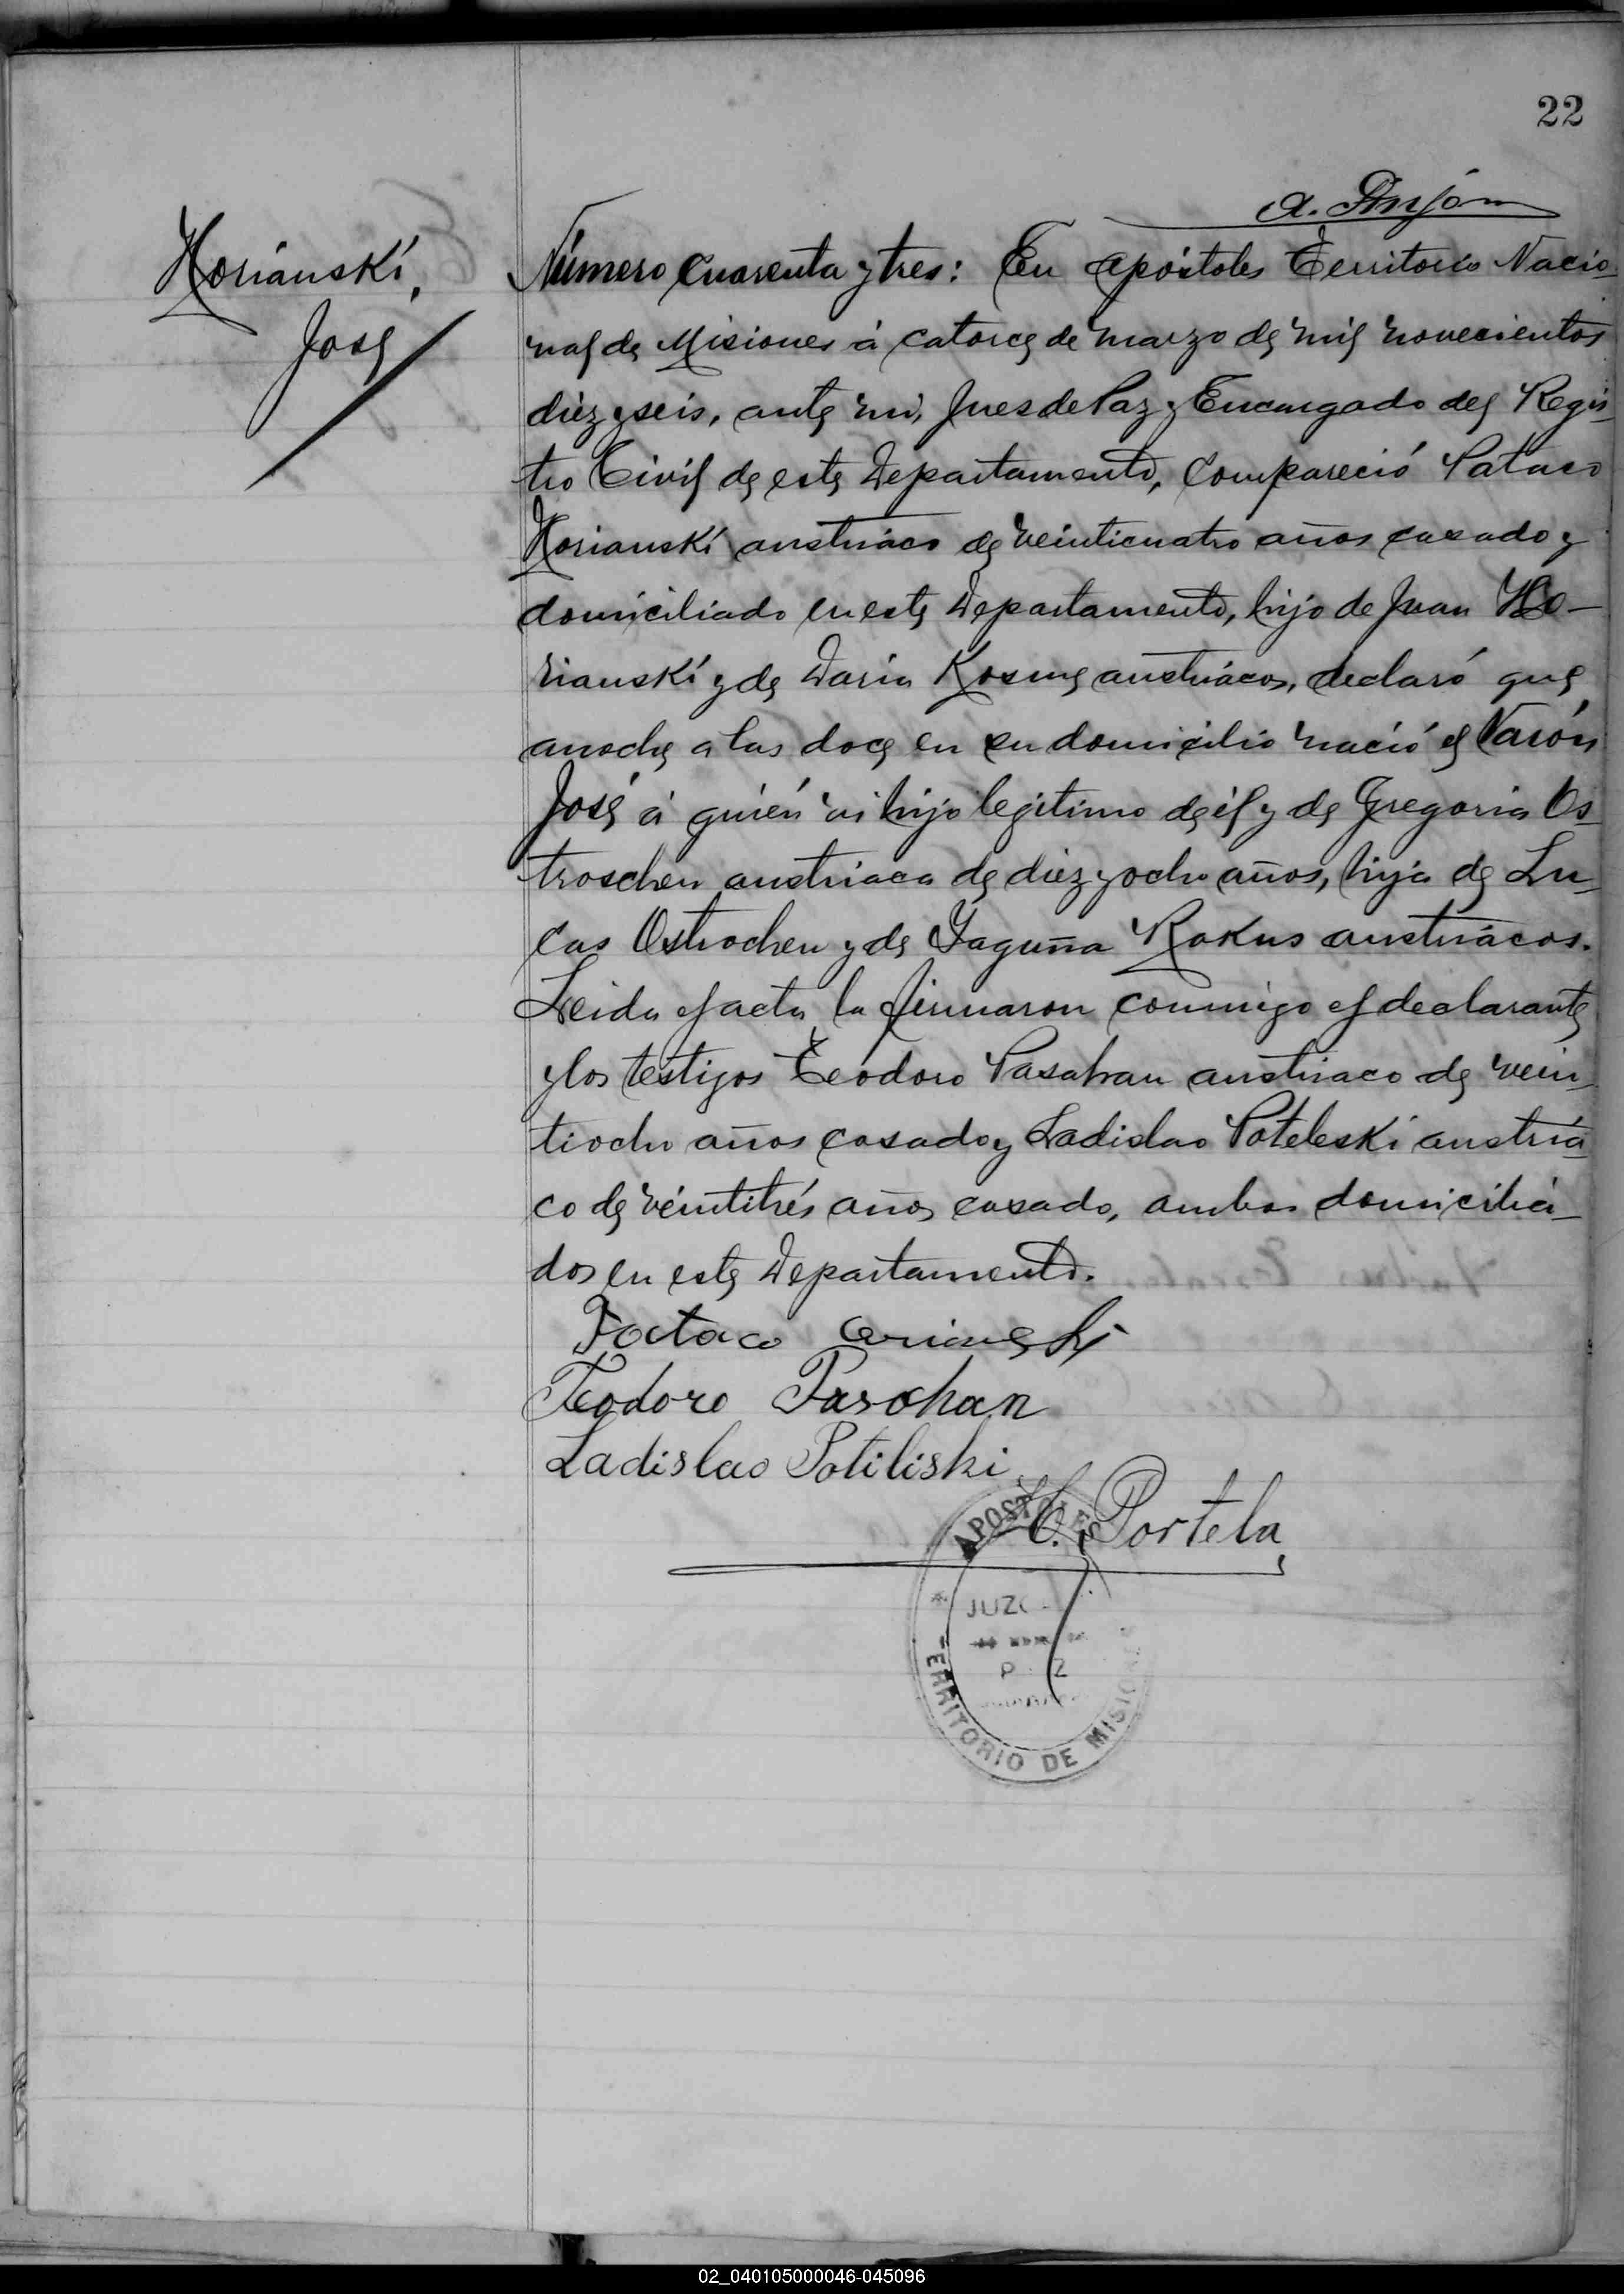 22
Horianski,
José
Número cuarenta y tres: En Apóstoles Territorio Nacio-
nal de Misiones á catorce de Marzo de mil novecientos
diez y seis, ante mi, Jues de Paz y Encargado del Regis-
tro Civil de este Departamento, Compareció Pataco
Horianski austriaco de veinticuatro años casado y
domiciliado en este Departamento, hijo de Juan Ho-
rianski y de Daria Kosme austriácos, declaró que
anoche a las doce en su domicilio nació el Varón
José á quién vi hijo legitimo de él y de Gregoria Os-
troschen austriaca de diez y ocho años, hija de Lu-
cas Ostrochen y de Yaguña Rakus austriácos.
Leida el acta la firmaron conmigo el declarante
y los testigos Teodoro Pasahan austriaco de vein-
tiocho años casado y Ladislao Poteleski austriá-
co de veintitrés años casado, ambos domicilia-
dos en este Departamento.
Pataco Orianeski
Teodoro Paschan
Ladislao Potiliski
C. Portela
APOSTOLES
JUZ
TERRITORIO DE MISIONES
02_040105000046-045096